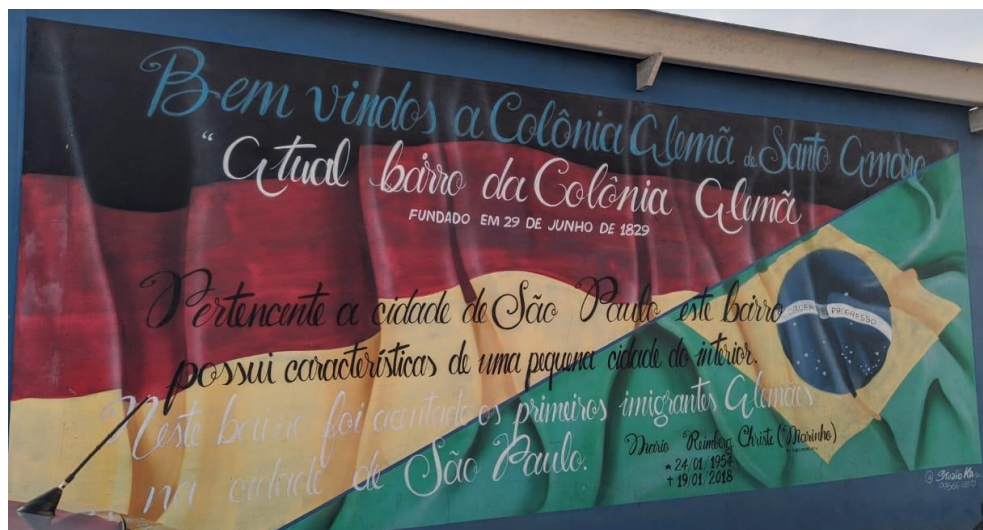 Bem vindos a Colônia Alemã de Santo Amaro
"Atual bairro da Colônia Alemã
FUNDADO EM 29 DE JUNHO DE 1829
Pertencente a cidade de São Paulo este bairro
possui características de uma pequena cidade do interior.
Neste bairro foi os primeiros imigrantes Alemães
na cidade de São Paulo.
ORDEM E PROGRESSO
Mario Reimberg Christe (Marinho)
* 24/01/1954
† 19/01/2018
@ Studio Ka